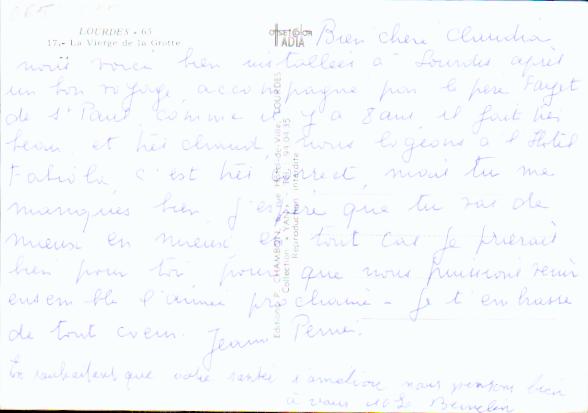 LOURDES - 65
17.- La Vierge de la Grotte
OFFSET COLOR
IADIA
Bien chère Claudia
nous voici bien installées à Lourdes après
un bon voyage, accompagné par le père Fayet
de St Paul, comme il y a 8 ans il fait très
beau et très chaud, nous logeons à l'Hôtel
Fabiola, c'est très correct, mais tu me
manques bien, j'espère que tu vas de
mieux en mieux en tout cas je prierais
bien pour toi pour que nous puissions venir
ensemble l'année prochaine - Je t'embrasse
de tout coeur. Jeanne
En souhaitant que votre santé s'améliore nous pensons bien
à vous
Editions P. CHAMBON, Hôtel-de-Ville, LOURDES
Collection « YAN » - Tél. 94.04.35
Reproduction interdite